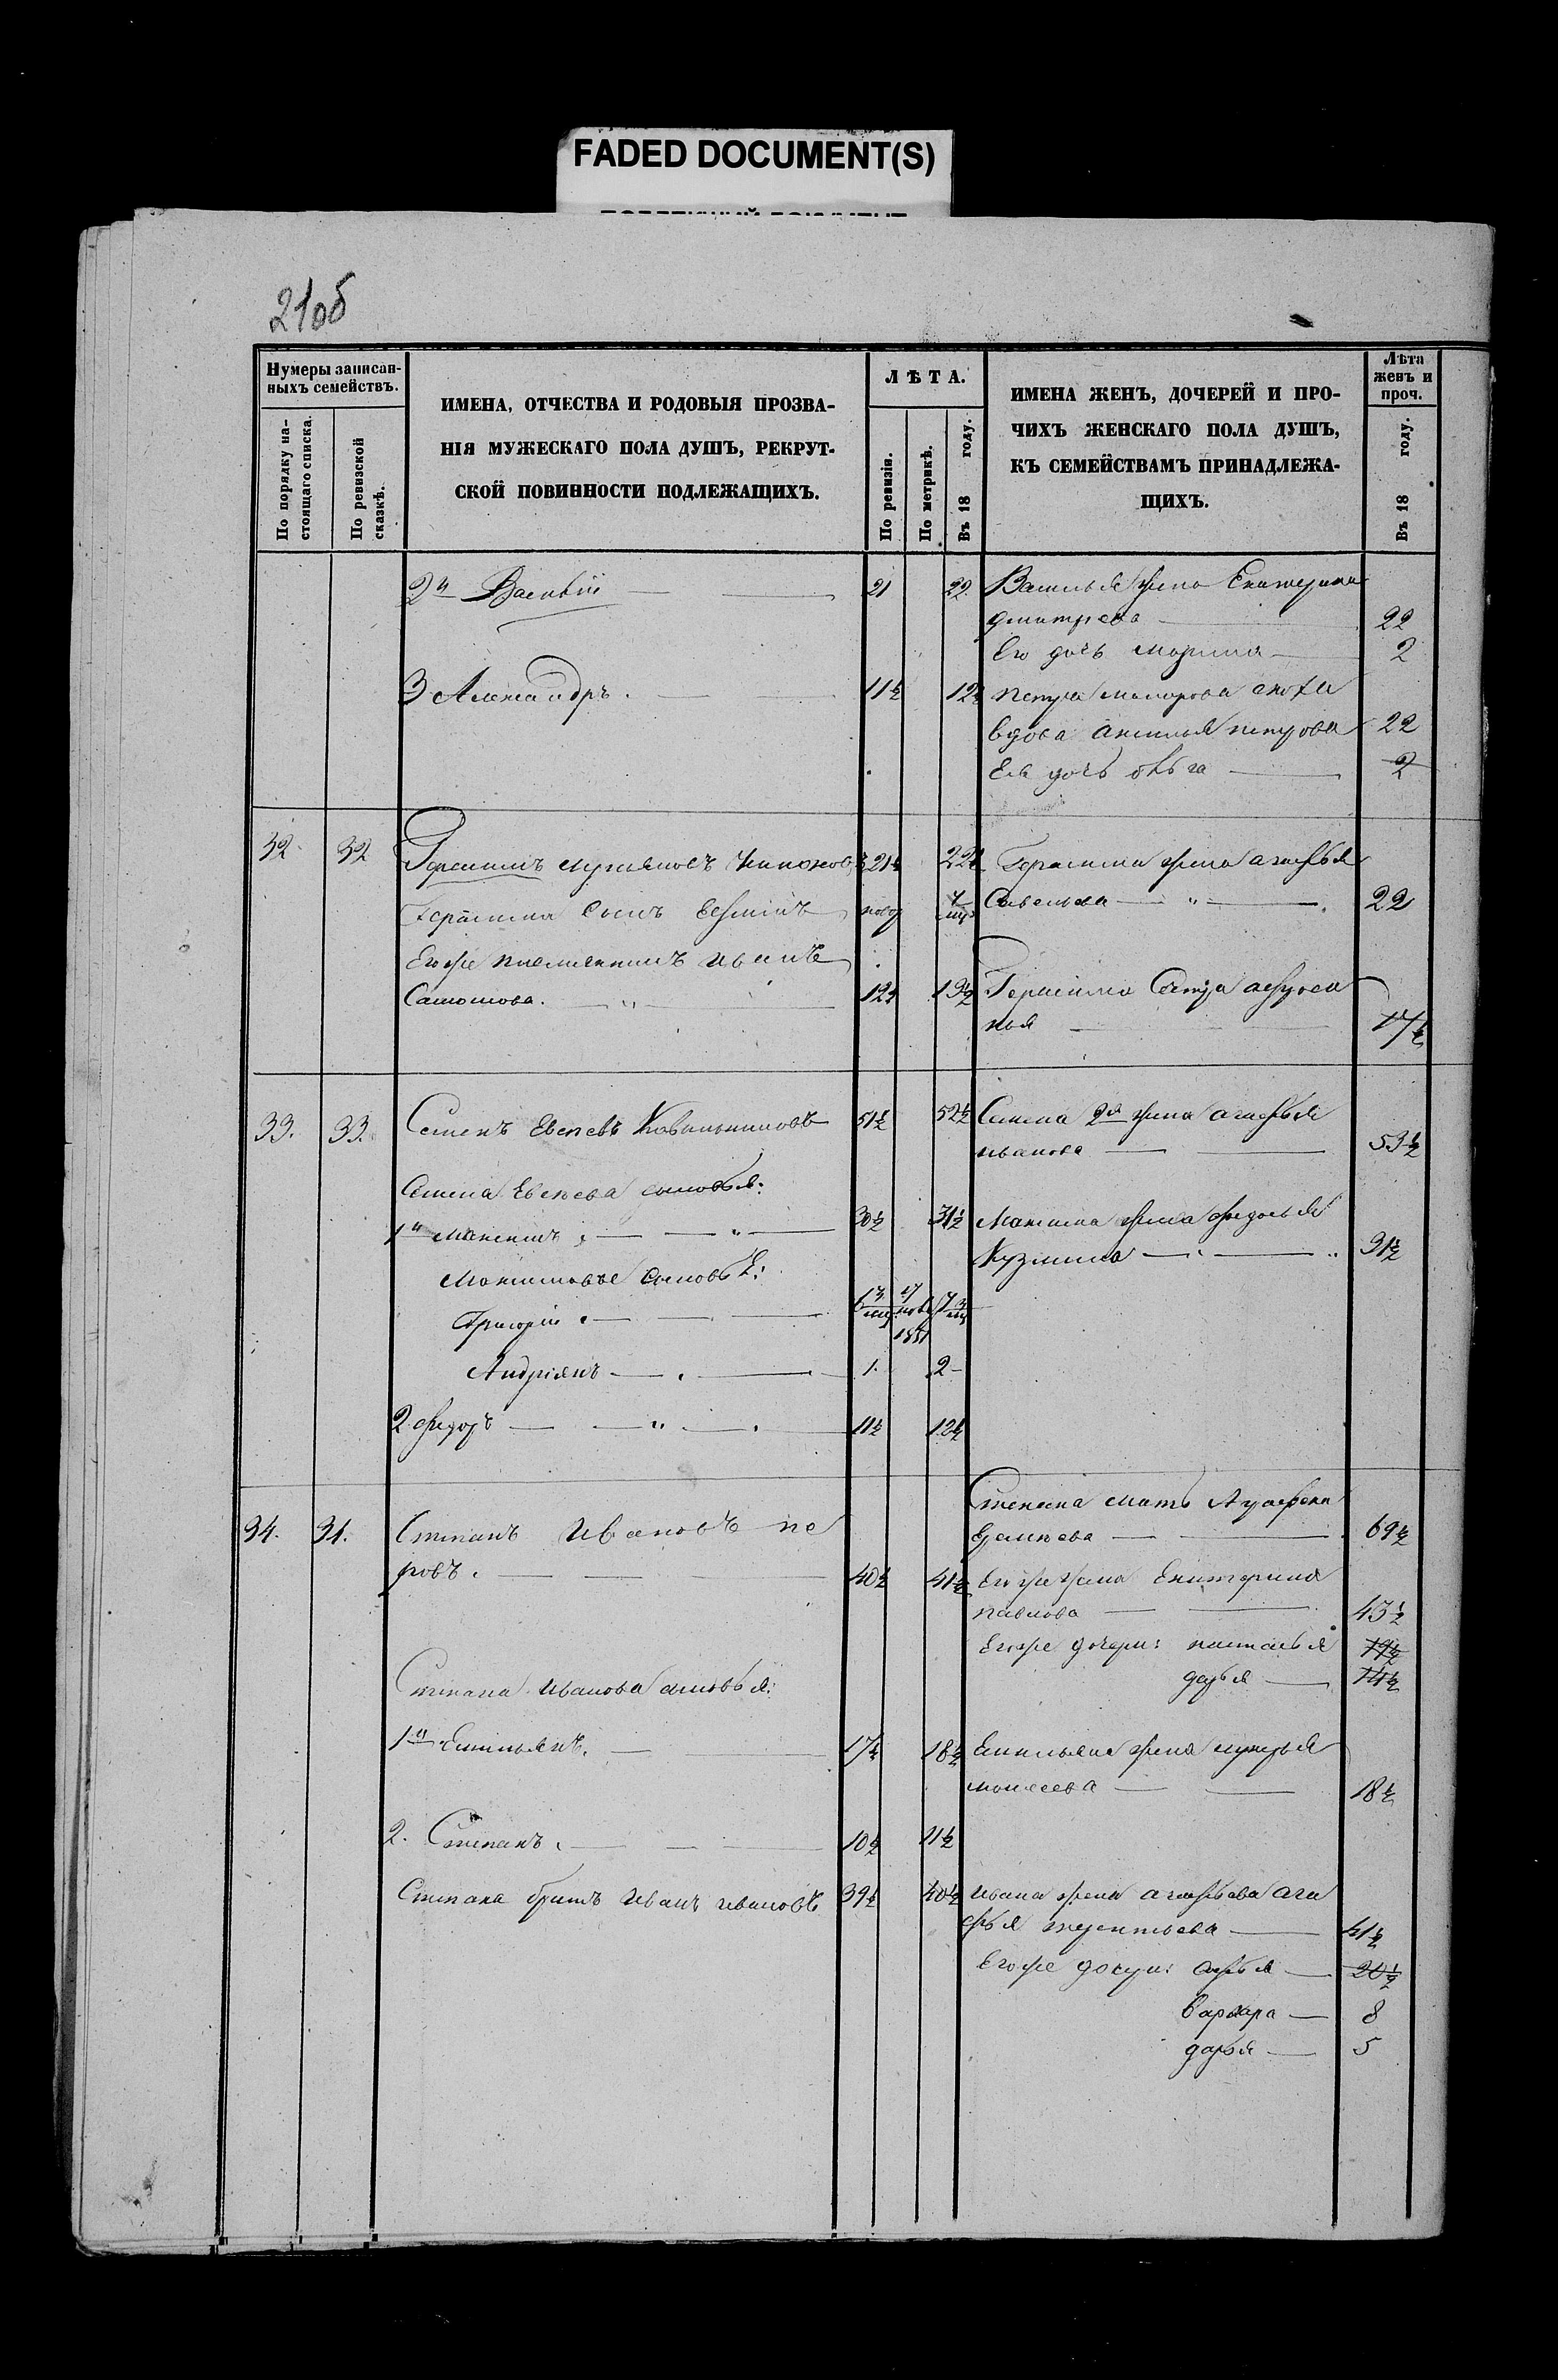 FADED DOCUMENT(S)
21об
Нумеры записан-
ныхъ семействъ.
По порядку на-
стоящаго списка.
По ревизской
сказкѣ.
ИМЕНА, ОТЧЕСТВА И РОДОВЫЯ ПРОЗВА-
НІЯ МУЖЕСКАГО ПОЛА ДУШЪ, РЕКРУТ-
СКОЙ ПОВИННОСТИ ПОДЛЕЖАЩИХЪ.
ЛѢТА.
По ревизіи.
По метрикѣ.
Въ 18 году.
ИМЕНА ЖЕНЪ, ДОЧЕРЕЙ И ПРО-
ЧИХЪ ЖЕНСКАГО ПОЛА ДУШЪ,
КЪ СЕМЕЙСТВАМЪ ПРИНАДЛЕЖА-
ЩИХЪ.
Лѣта
женъ и
проч.
Въ 18 году.
2й Василій 21 22 Василья жена Екатерина
дмитрева 22
Его дочь марина 2
3 Александръ 11½ 12½ петра сноха
вдова аксинья петрова 22
Ея дочь 2
32 32 Герасимъ 21½ 22½ Герасима жена агафья
Герасима сынъ новор Савельева 22
Егоже племянникъ иванъ
12½ 13½ Герасима Сестра афросинья 17½
33. 33. Семенъ Евсеевъ 51½ 52½ Семена 2я жена агафья
иванова 53½
Семена Евсеева сыновья:
1й Максимъ 30½ 31½ Максима жена федосья
Кузмина 31½
Максимовы сыновья:
Григорій
Андріянъ 1. 2
2 федоръ 11½ 12½
34. 34. Степанъ Ивановъ Степана мать Аграфена
69½
40½ 41½ Егоже жена Екатерина
павлова 43½
Егоже дочери: настасья 19½
дарья 14½
Степана Иванова сыновья:
1й Емильянъ. 17½ 18½ Емильяна жена лукерья
моисеева 18½
2. Степанъ 10½ 11½
Степана братъ Иванъ ивановъ 39½ 40½ Ивана жена ага
фья терентьева 41½
Егоже дочери: 20½
варвара 8
дарья 5